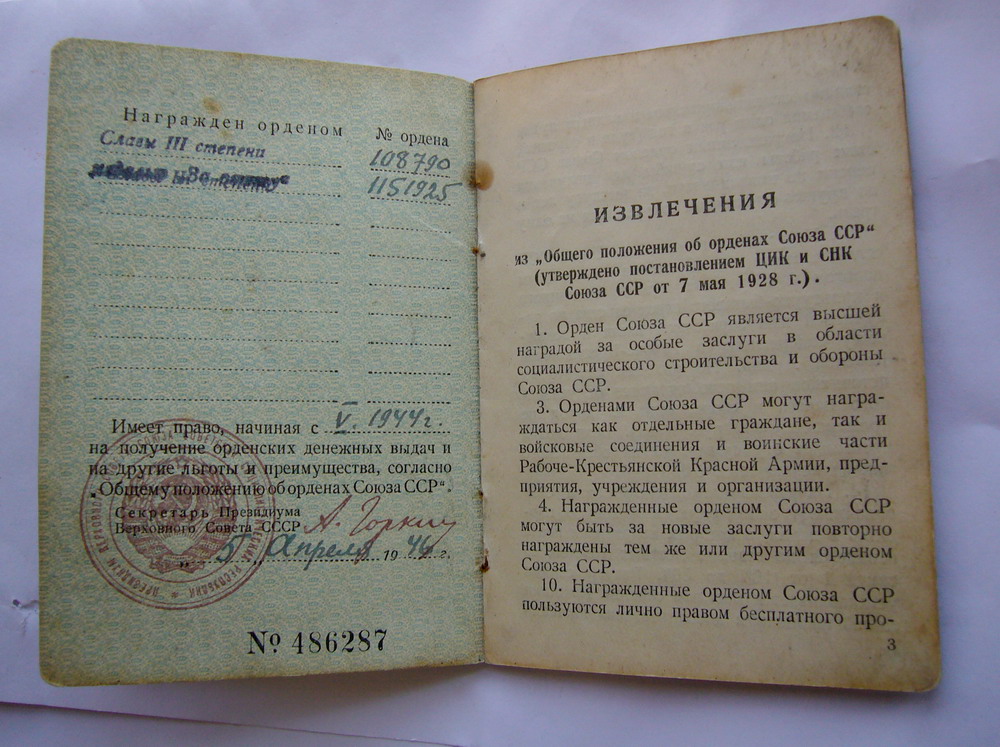 Награжден орденом № ордена
Славы III степени 108790
медалью „За 1151925
Имеет право, начиная с V. 1944г.
на получение орденских денежных выдач и
на другие льготы и преимущества, согласно
„Общему положению об орденах Союза ССР“.
Секретарь Президиума
Верховного Совета СССР А. Горкин
„5„ Апреля 1946 г.
№ 486287
ИЗВЛЕЧЕНИЯ
из „Общего положения об орденах Союза ССР“
(утверждено постановлением ЦИК и СНК
Союза ССР от 7 мая 1928 г.).
1. Орден Союза ССР является высшей
наградой за особые заслуги в области
социалистического строительства и обороны
Союза ССР.
3. Орденами Союза ССР могут награ-
ждаться как отдельные граждане, так и
войсковые соединения и воинские части
Рабоче-Крестьянской Красной Армии, пред-
приятия, учреждения и организации.
4. Награжденные орденом Союза ССР
могут быть за новые заслуги повторно
награждены тем же или другим орденом
Союза ССР.
10. Награжденные орденом Союза ССР
пользуются лично правом бесплатного про-
3